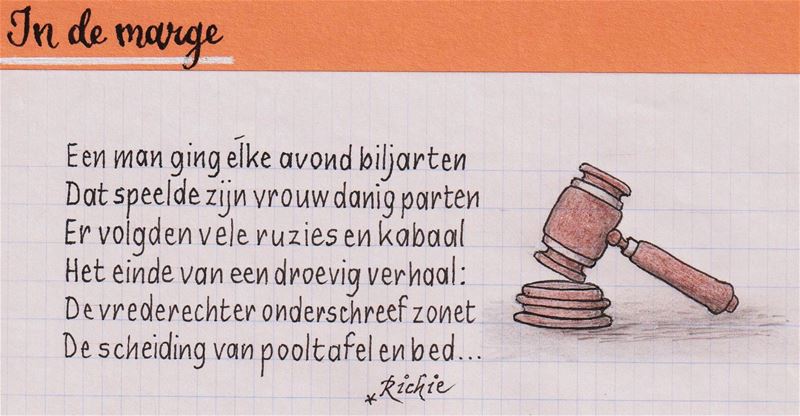 In de marge
Een man ging élke avond biljarten
Dat speelde zijn vrouw danig parten
Er volgden vele ruzies en kabaal
Het einde van een droevig verhaal:
De vrederechter onderschreef zonet
De scheiding van pooltafel en bed...
*Richie